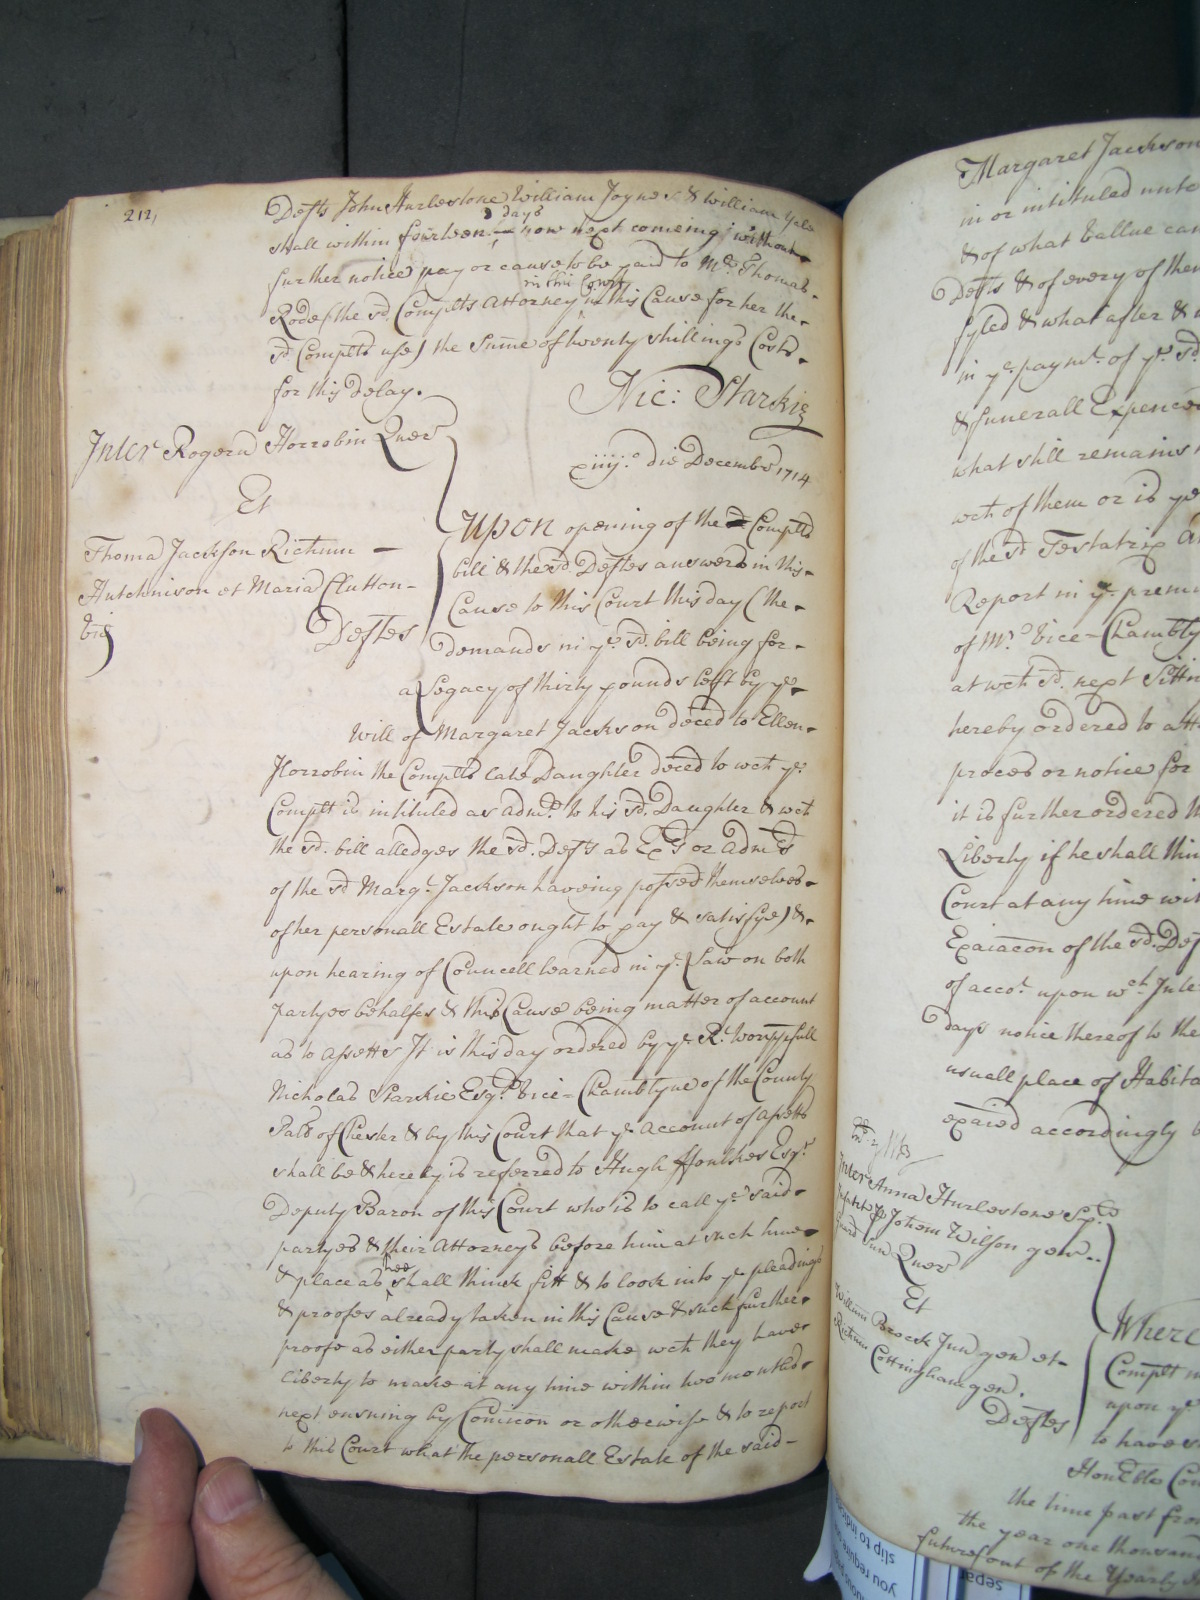 212,
Defts John Hurlestone William Joynes & William Yale
shall within fourteen days now next comeing without
further notice pay or cause to be paid to Mr Thomas
Rode (the sd. Complts Attorney in this Court in this Cause for her the
sd Complts use) the Sume of twenty shillings Costs
for this Delay.
Nic: Starkie
Inter Rogeru Horrobin Quer
Et
Thoma Jackson Ricûm
Hutchinson et Maria Clutton
vid
Deftes
xiiij.o die Decembr 1714
Upon opening of the Complts
bill & the sd. Deftes answers in this
Cause to this Court this day (the
demands in ye sd. bill being for
a Legacy of thirty pounds left by ye
Will of Margaret Jackson deced to Ellen
Horrobin the Complts late Daughter deced to wch ye
Complt is intituled as Admr. to his sd. Daughter & wch
the sd. bill alledges the sd. Defts as Exrs or Admrs
of the sd Margt. Jackson haveing possed themselves
of her personall Estate ought to pay & satisfye) &
upon hearing of Councell learned in ye. Law on both
partyes behalfes & this Cause being matter of account
as to Assetts It is this day ordered by ye. Rt. Worppfull
Nicholas Starkie Esqr. Vice-Chamblyne of the County
Palt. of Chester & by this Court that ye Account of Assetts
shall be & hereby is referred to Hugh ffoulkes Esqr.
Deputy Baron of this Court who is to call ye said
partyes & their Attorneys before him at such time
& place as hee shall think fitt & to look into ye pleadings
& proofes already taken in this Cause & such further
proofe as either party shall make wch they have
liberty to make at any time within two months
next ensuing by Comicon or otherwise & to report
to this Court what the personall Estate of the said
Margaret Jackson
in or intituled unto
& of what vallue
Defts & of every of them
fyled & what after &
in ye. paymt. of ye. sd.
& funerall Expences
what still remains
wch of them or is ye
of the sd Testatrix
Report in ye. prem
of Mr. Vice-Chambly
at wch sd. next Sittn
hereby ordered to att
proces or notice for
it is further ordered th
Liberty if he shall thin
Court at any time wit
Exaiacon of the sd. Def
of accot. upon wch Inte
days notice thereof to the
usuall place of Habita
exaied accordingly
Inter Anna Hurlestone
Johem Wilson gen
Quer
Et
Willum Brock Jun gen et
Ricûm Cottingham gen.
Deftes
Where
Complt
upon ye
to have
Honble Co
the time past from
the year one thousan
future out of the Yearly